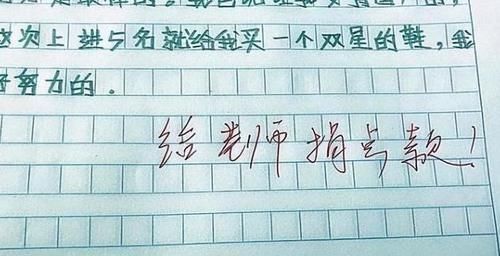 这次上进5名就给我买一个双星的鞋，我
努力的．
给老师捐点款！